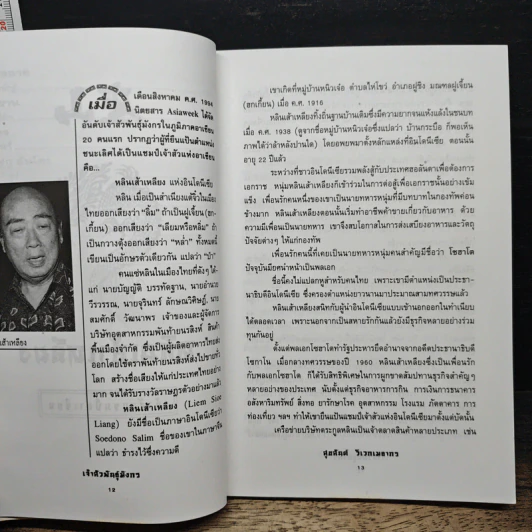 เมื่อ
เดือนสิงหาคม ค.ศ. 1994
นิตยสาร Asiaweek ได้จัด
อันดับเจ้าสัวพันธุ์มังกรในภูมิภาคอาเซียน
20 คนแรก ปรากฏว่าผู้ที่ยืนเป็นตำแหน่ง
ชนะเลิศได้เป็นแชมป์เจ้าสัวแห่งอาเซียน
คือ...
หลินเส้าเหลียง แห่งอินโดนีเซีย
หลิน เมื่อเป็นสำเนียงแต้จิ๋วในเมือง
ไทยออกเสียงว่า "ลิ้ม" ถ้าเป็นฝูเจี้ยน (ฮก-
เกี้ยน) ออกเสียงว่า "เลียมหรือหลิม" ถ้า
เป็นกวางตุ้งออกเสียงว่า "หล่ำ" ทั้งหมดนี้
เขียนเป็นอักษรตัวเดียวกัน แปลว่า "ป่า"
คนแซ่หลินในเมืองไทยที่ดังๆ ได้-
แก่ นายบัญญัติ บรรทัดฐาน, นายอำนวย
วีรวรรณ, นายจุรินทร์ ลักษณวิศิษฏ์, นาย
สมศักดิ์ วัฒนาพร เจ้าของและผู้จัดการ
บริษัทอุตสาหกรรมพันท้ายนรสิงห์ สินค้า
พื้นเมืองจำกัด ซึ่งเป็นผู้ผลิตอาหารไทยส่ง
ออกโดยใช้ตราพันท้ายนรสิงห์ส่งไปขายทั่ว
โลก สร้างชื่อเสียงให้แก่ประเทศไทยอย่าง
มาก จนได้รับรางวัลราษฎรตัวอย่างมาแล้ว
หลินเส้าเหลียง (Liem Sioe
Liang) ยังมีชื่อเป็นภาษาอินโดนีเซียว่า
Soedono Salim ชื่อของเขาในภาษาจีน
แปลว่า ธำรงไว้ซึ่งความดี
เส้าเหลียง
เจ้าสัวพันธุ์มังกร
12
เขาเกิดที่หมู่บ้านหนิวเจ๋อ ตำบลไห่โขว่ อำเภอฝูชิง มณฑลฝูเจี้ยน
(ฮกเกี้ยน) เมื่อ ค.ศ. 1916
หลินเส้าเหลียงทิ้งถิ่นฐานบ้านเดิมซึ่งมีความยากจนแห้งแล้งในชนบท
เมื่อ ค.ศ. 1938 (ดูจากชื่อหมู่บ้านหนิวเจ๋อซึ่งแปลว่า บ้านกระบือ ก็พอเห็น
ภาพได้ว่าล้าหลังปานใด) โดยอพยพมาตั้งหลักแหล่งที่อินโดนีเซีย ตอนนั้น
อายุ 22 ปีแล้ว
ระหว่างที่ชาวอินโดนีเซียรวมพลังสู้กับประเทศฮอลันดาเพื่อต้องการ
เอกราช หนุ่มหลินเส้าเหลียงก็เข้าร่วมในการต่อสู้เพื่อเอกราชนั้นอย่างเข้ม
แข็ง เพื่อนรักคนหนึ่งของเขาเป็นนายทหารหนุ่ม ที่มีบทบาทในกองทัพค่อน
ข้างมาก หลินเส้าเหลียงตอนนั้นเริ่มทำอาชีพค้าขายเกี่ยวกับอาหาร ด้วย
ความมีเพื่อนเป็นนายทหาร เขาจึงสบโอกาสในการส่งเสบียงอาหารและวัตถุ
ปัจจัยต่างๆ ให้แก่กองทัพ
เพื่อนรักคนนี้ที่เคยเป็นนายทหารหนุ่มคนสำคัญมีชื่อว่า โซฮาโต
ปัจจุบันมียศนำหน้าเป็นพลเอก
ชื่อนี้คงไม่แปลกหูสำหรับคนไทย เพราะเขามีตำแหน่งเป็นประธา-
นาธิบดีอินโดนีเซีย ซึ่งครองตำแหน่งยาวนานมาประมาณสามทศวรรษแล้ว
หลินเส้าเหลียงสนิทกับผู้นำอินโดนีเซียแบบเข้านอกออกในทำเนียบ
ได้ตลอดเวลา เพราะนอกจากเป็นสหายรักกันแล้วยังมีธุรกิจหลายอย่างร่วม
ทุนกันอยู่
ตั้งแต่พลเอกโซฮาโตทำรัฐประหารยึดอำนาจจากอดีตประธานาธิบดี
โซกาโน เมื่อกลางทศวรรษของปี 1960 หลินเส้าเหลียงซึ่งเป็นเพื่อนรัก
กับพลเอกโซฮาโต ก็ได้สิทธิพิเศษในการผูกขาดสัมปทานธุรกิจสำคัญๆ
หลายอย่างของประเทศ นับตั้งแต่ธุรกิจอาหารการกิน การเงินการธนาคาร
อสังหาริมทรัพย์ สิ่งทอ ยารักษาโรค อุตสาหกรรม โรงแรม ภัตตาคาร การ
ท่องเที่ยว ฯลฯ ทำให้เขายืนเป็นแชมป์เจ้าสัวอินโดนีเซียมาตั้งแต่บัดนั้น
เครือข่ายบริษัทตระกูลหลินเป็นเจ้าตลาดสินค้าหลายประเภท เช่น
สุขสันต์ วิเวกเมธากร
13